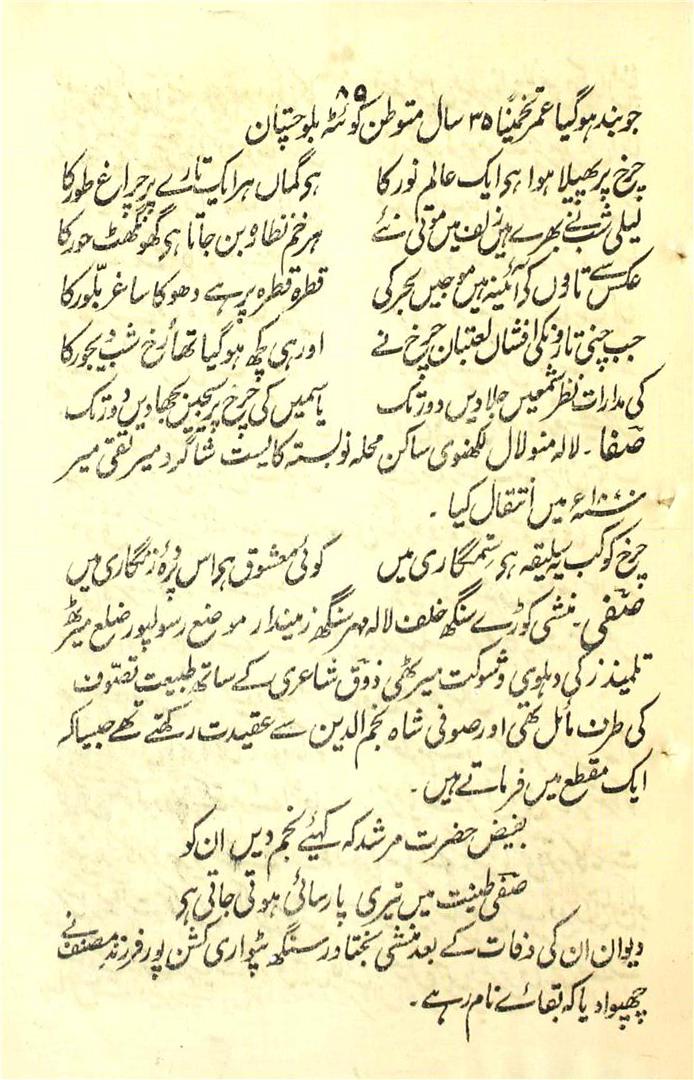 ۸۵
جو بند ہوگیا عمر تخمیناً ۳۵ سال متوطن کوئٹہ بلوچستان
چرخ پر پھیلا ہوا ہی ایک عالم نور کا ہی گماں ہر ایک تارے پر چراغ طور کا
لیلی شب نے بھرے ہیں زلف میں موتی نئے ہر خم نظارہ بن جاتا ہی گھونگھٹ حور کا
عکس سے تاروں کی آئینہ ہیں موجیں بحر کی قطرہ قطرہ پر ہے دھوکا ساغر بلّور کا
جب چنی تاروں کی افشاں لعبتان چرخ نے اور ہی کچھ ہوگیا تھا رُخ شب دیجور کا
کی مدارات نظر شمعیں جلا دیں دور تک یاسمیں کی چرخ پر سیجیں بچھا دیں دور تک
صفا۔ لالہ منو لال لکھنوی ساکن محلہ نوبستہ کایست شاگرد میر تقی میر
میں انتقال کیا۔
چرخ کو کب یہ سلیقہ ہی ستمگاری میں کوئی معشوق ہی اس پردۂ زنگاری میں
صفی۔ منشی کوڑے سنگھ خلف لالہ مہر سنگھ زمیندار موضع رسولپور ضلع میرٹھ
تلمیذ زکی دہلوی و شوکت میرٹھی ذوق شاعری کے ساتھ طبیعت تصوّف
کی طرف مائل تھی اور صوفی شاہ نجم الدین سے عقیدت رکھتے تھے جیسا کہ
ایک مقطع میں فرماتے ہیں۔
بفیض حضرت مرشد کہ کہئے نجم دیں ان کو
صفی طینت میں تیری پارسائی ہوتی جاتی ہی
دیوان ان کی وفات کے بعد منشی بختاور سنگھ پٹواری کشن پور فرزند مصنف نے
چھپوا دیا کہ بقائے نام رہے۔